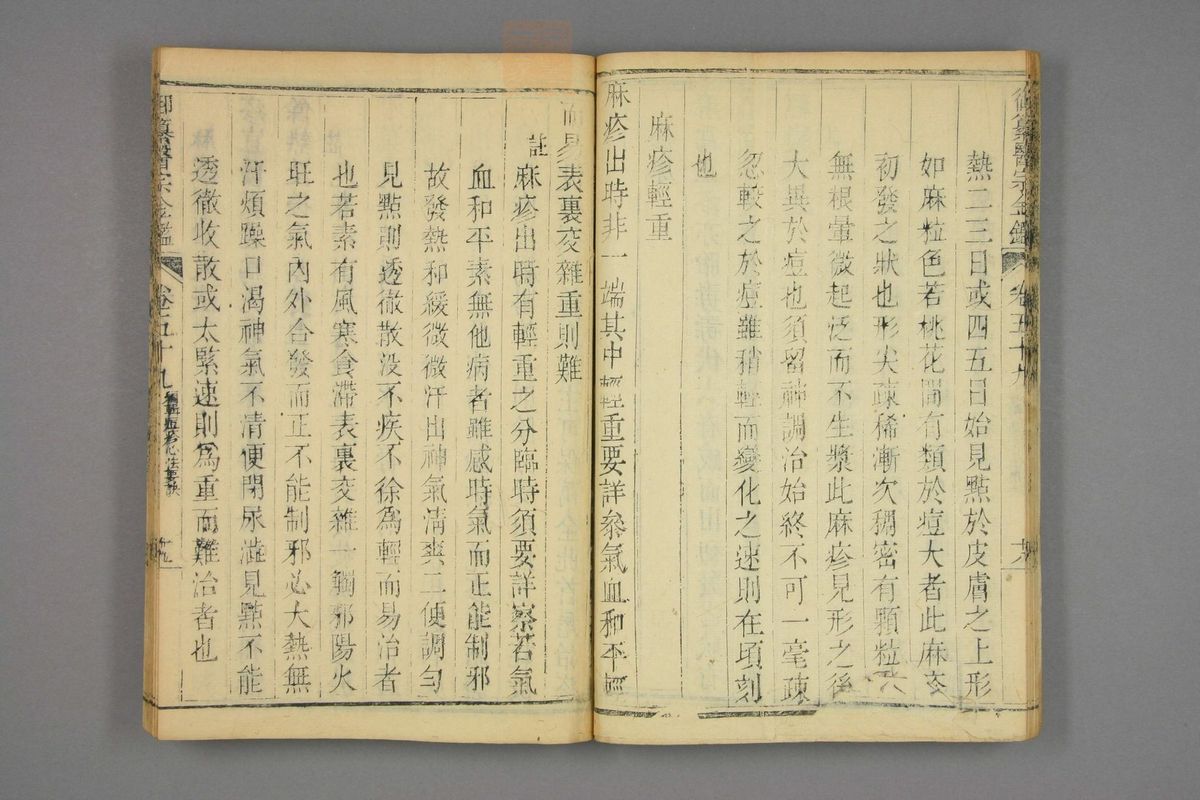 御纂醫宗金鑑 卷五十九
熱二三日或四五日始見點於皮膚之上形
如麻粒色若桃花間有類於痘大者此麻疹
初發之狀也形尖疎稀漸次稠密有顆粒
無根暈微起泛而不生漿此麻疹見形之後
大異於痘也須留神調治始終不可一毫疎
忽較之於痘雖稍輕而變化之速則在頃刻
也
麻疹輕重
麻疹出時非一端其中輕重要詳叅氣血和平輕
而易表裏交雜重則難
註麻疹出時有輕重之分臨時須要詳察若氣
血和平素無他病者雖感時氣而正能制邪
故發熱和緩微微汗出神氣清爽二便調勻
見點則透徹散没不疾不徐為輕而易治者
也若素有風寒食滯表裏交雜一觸邪陽火
旺之氣內外合發而正不能制邪必大熱無
汗煩躁口渴神氣不清便閉尿澁見點不能
透徹收散或太緊速則為重而難治者也
御纂醫宗金鑑 卷五十九